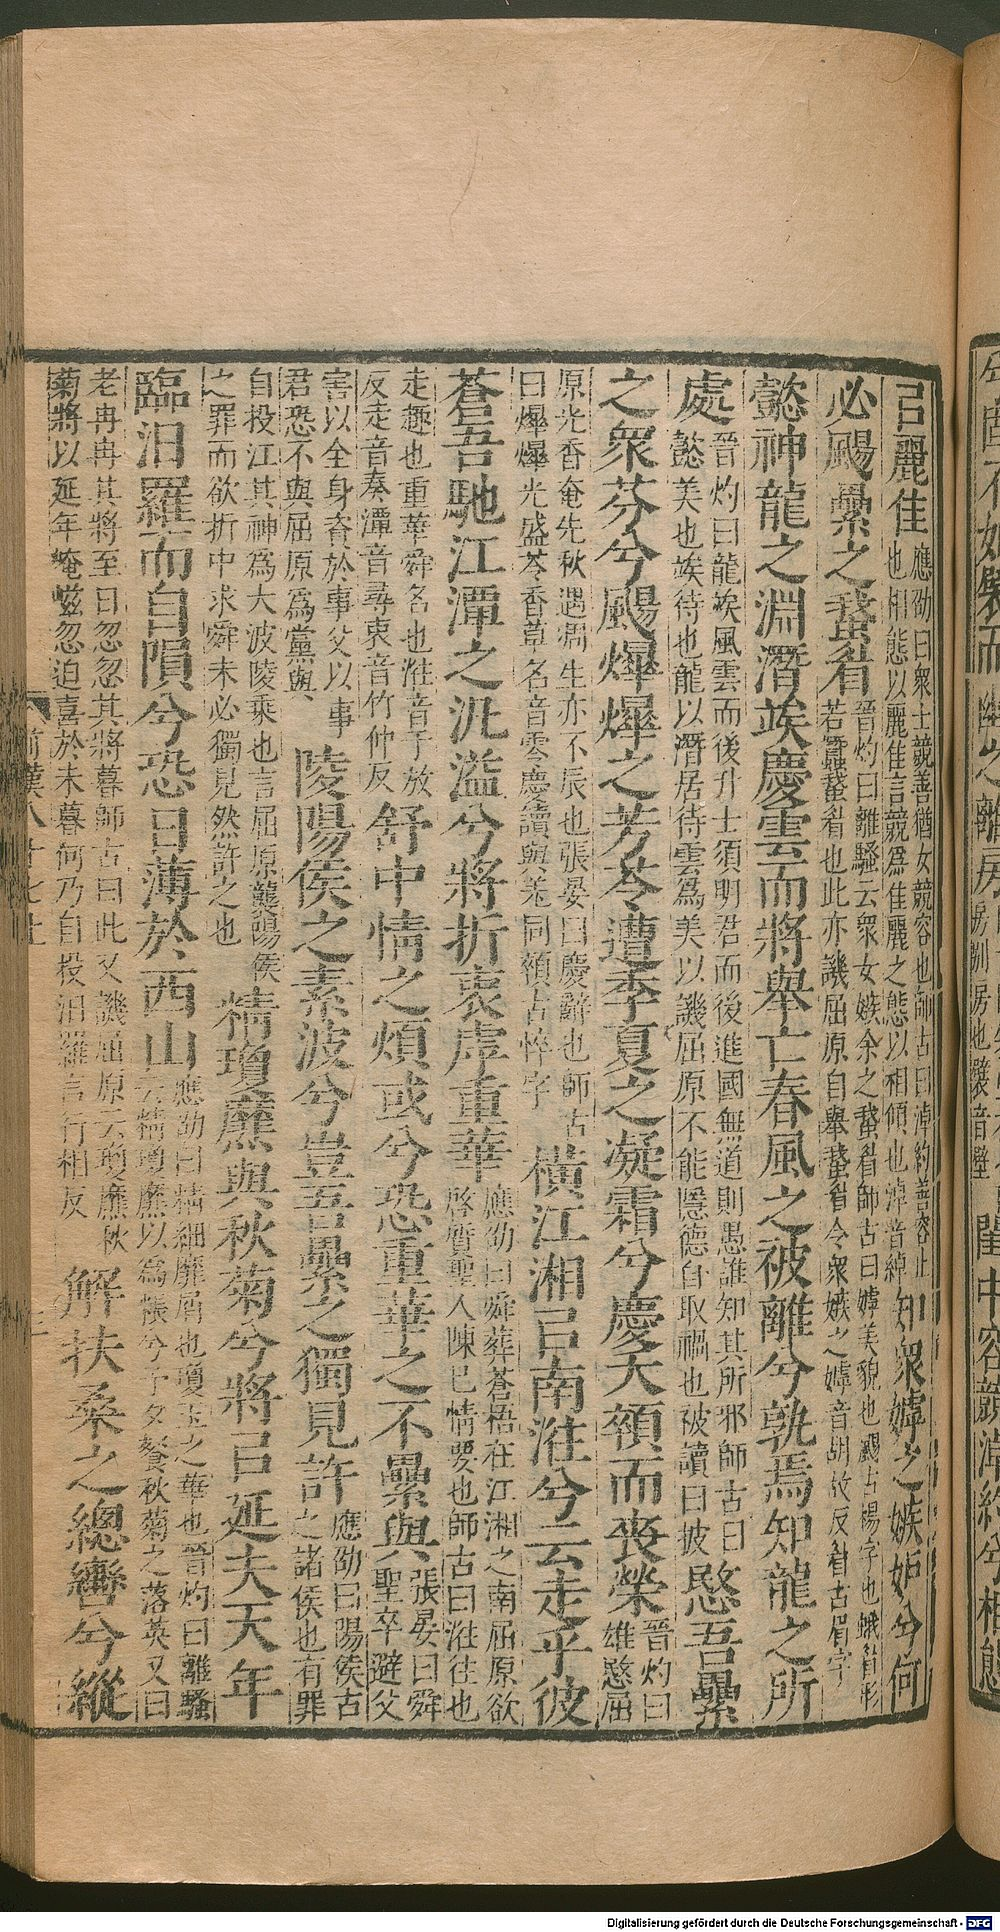 㠯麗佳應劭曰衆士競善猶女競容也師古曰淖約善容止也相態以麗佳言競爲佳麗之態以相傾也淖音綽知衆嫭之嫉妒兮何
必颺纍之蛾眉晉灼曰離騷云衆女嫉余之蛾眉師古曰嫭美貌也颺古揚字也蛾眉形若蠶蛾眉也此亦譏屈原自舉蛾眉令衆嫉之嫭音胡故反眉古眉字
懿神龍之淵潛竢慶雲而將舉亡春風之被離兮孰焉知龍之所
處晉灼曰龍竢風雲而後升士須明君而後進國無道則愚誰知其所邪師古曰懿美也竢待也龍以潛居待雲爲美以譏屈原不能隱德自取禍也被讀曰披愍吾纍
之衆芬兮颺爗爗之芳苓遭季夏之凝霜兮慶夭顇而喪榮晉灼曰雄愍屈
原光香奄先秋遇凋生亦不辰也張晏曰慶辭也師古曰爗爗光盛苓香草名音零慶讀與羌同顇古悴字橫江湘㠯南淮兮云走乎彼
蒼吾馳江潭之汎溢兮將折衷虖重華應劭曰舜葬蒼梧在江湘之南屈原欲啓質聖人陳己情要也師古曰淮往也
走趣也重華舜名也淮音于放反走音奏潭音尋衷音竹仲反舒中情之煩或兮恐重華之不纍與張晏曰舜聖卒避父
害以全身資於事父以事君恐不與屈原爲黨與陵陽侯之素波兮豈吾纍之獨見許應劭曰陽侯古之諸侯也有罪
自投江其神爲大波陵乘也言屈原襲陽侯之罪而欲折中求舜未必獨見然許之也精瓊靡與秋菊兮將㠯延夫天年
臨汨羅而自隕兮恐日薄於西山應劭曰精細靡屑也瓊玉之華也晉灼曰離騷云精瓊靡以爲粻兮予夕餐秋菊之落英又曰
老冉冉其將至日忽忽其將暮師古曰此又譏屈原云瓊靡秋菊將以延年崦嵫忽迫喜於未暮何乃自投汨羅言行相反解扶桑之總轡兮縱
前漢八十七上
Digitalisierung gefördert durch die Deutsche Forschungsgemeinschaft - DFG